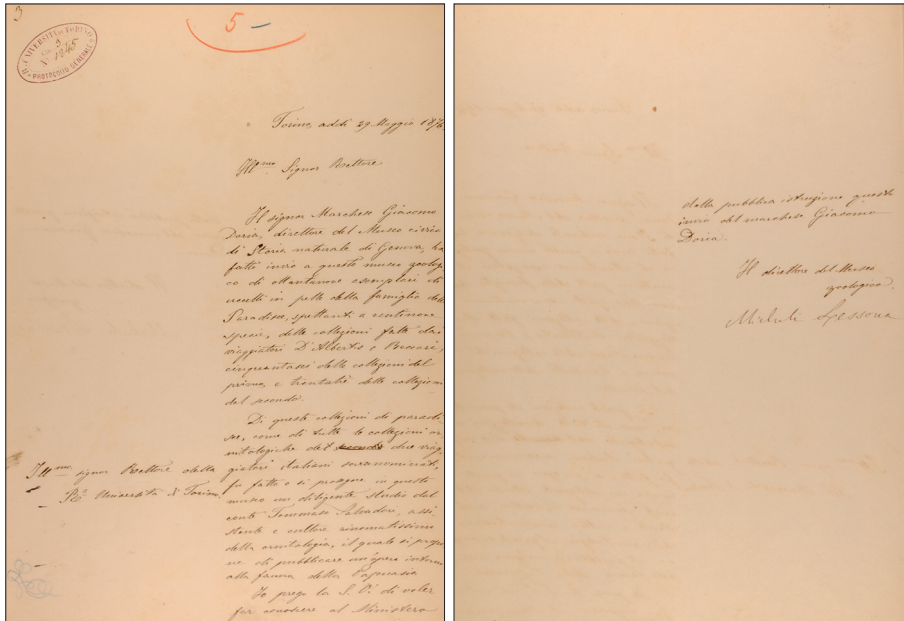 3
5 —
R. UNIVERSITÀ DI TORINO
N° 1245
PROTOCOLLO GENERALE
Torino, addì 29 Maggio 1876
Ill.mo Signor Rettore
Il signor Marchese Giacomo
Doria, direttore del Museo civico
di Storia naturale di Genova, ha
fatto invio a questo museo zoologi
co di ottantanove esemplari di
uccelli in pelle della famiglia delle
Paradisee, spettanti a ventinove
specie, delle collezioni fatte dai
viaggiatori D'Albertis e Beccari,
cinquantasei delle collezioni del
primo, e trentatrè delle collezioni
del secondo.
Di queste collezioni di paradi
see, come di tutte le collezioni or
nitologiche dei secondo due viag
giatori italiani soranominati,
fu fatto e si prosegue in questo
museo un diligente studio dal
conte Tommaso Salvadori, assi
stente e cultore rinomatissimo
della ornitologia, il quale si propo
ne di pubblicare un'opera intorno
alla fauna della Papuasia
Io prego la S. V. di voler
far conoscere al Ministero
Ill.mo signor Rettore della
R.a Università di Torino
della pubblica istruzione questo
invio del marchese Giacomo
Doria.
Il direttore del Museo
zoologico.
Michele Lessona